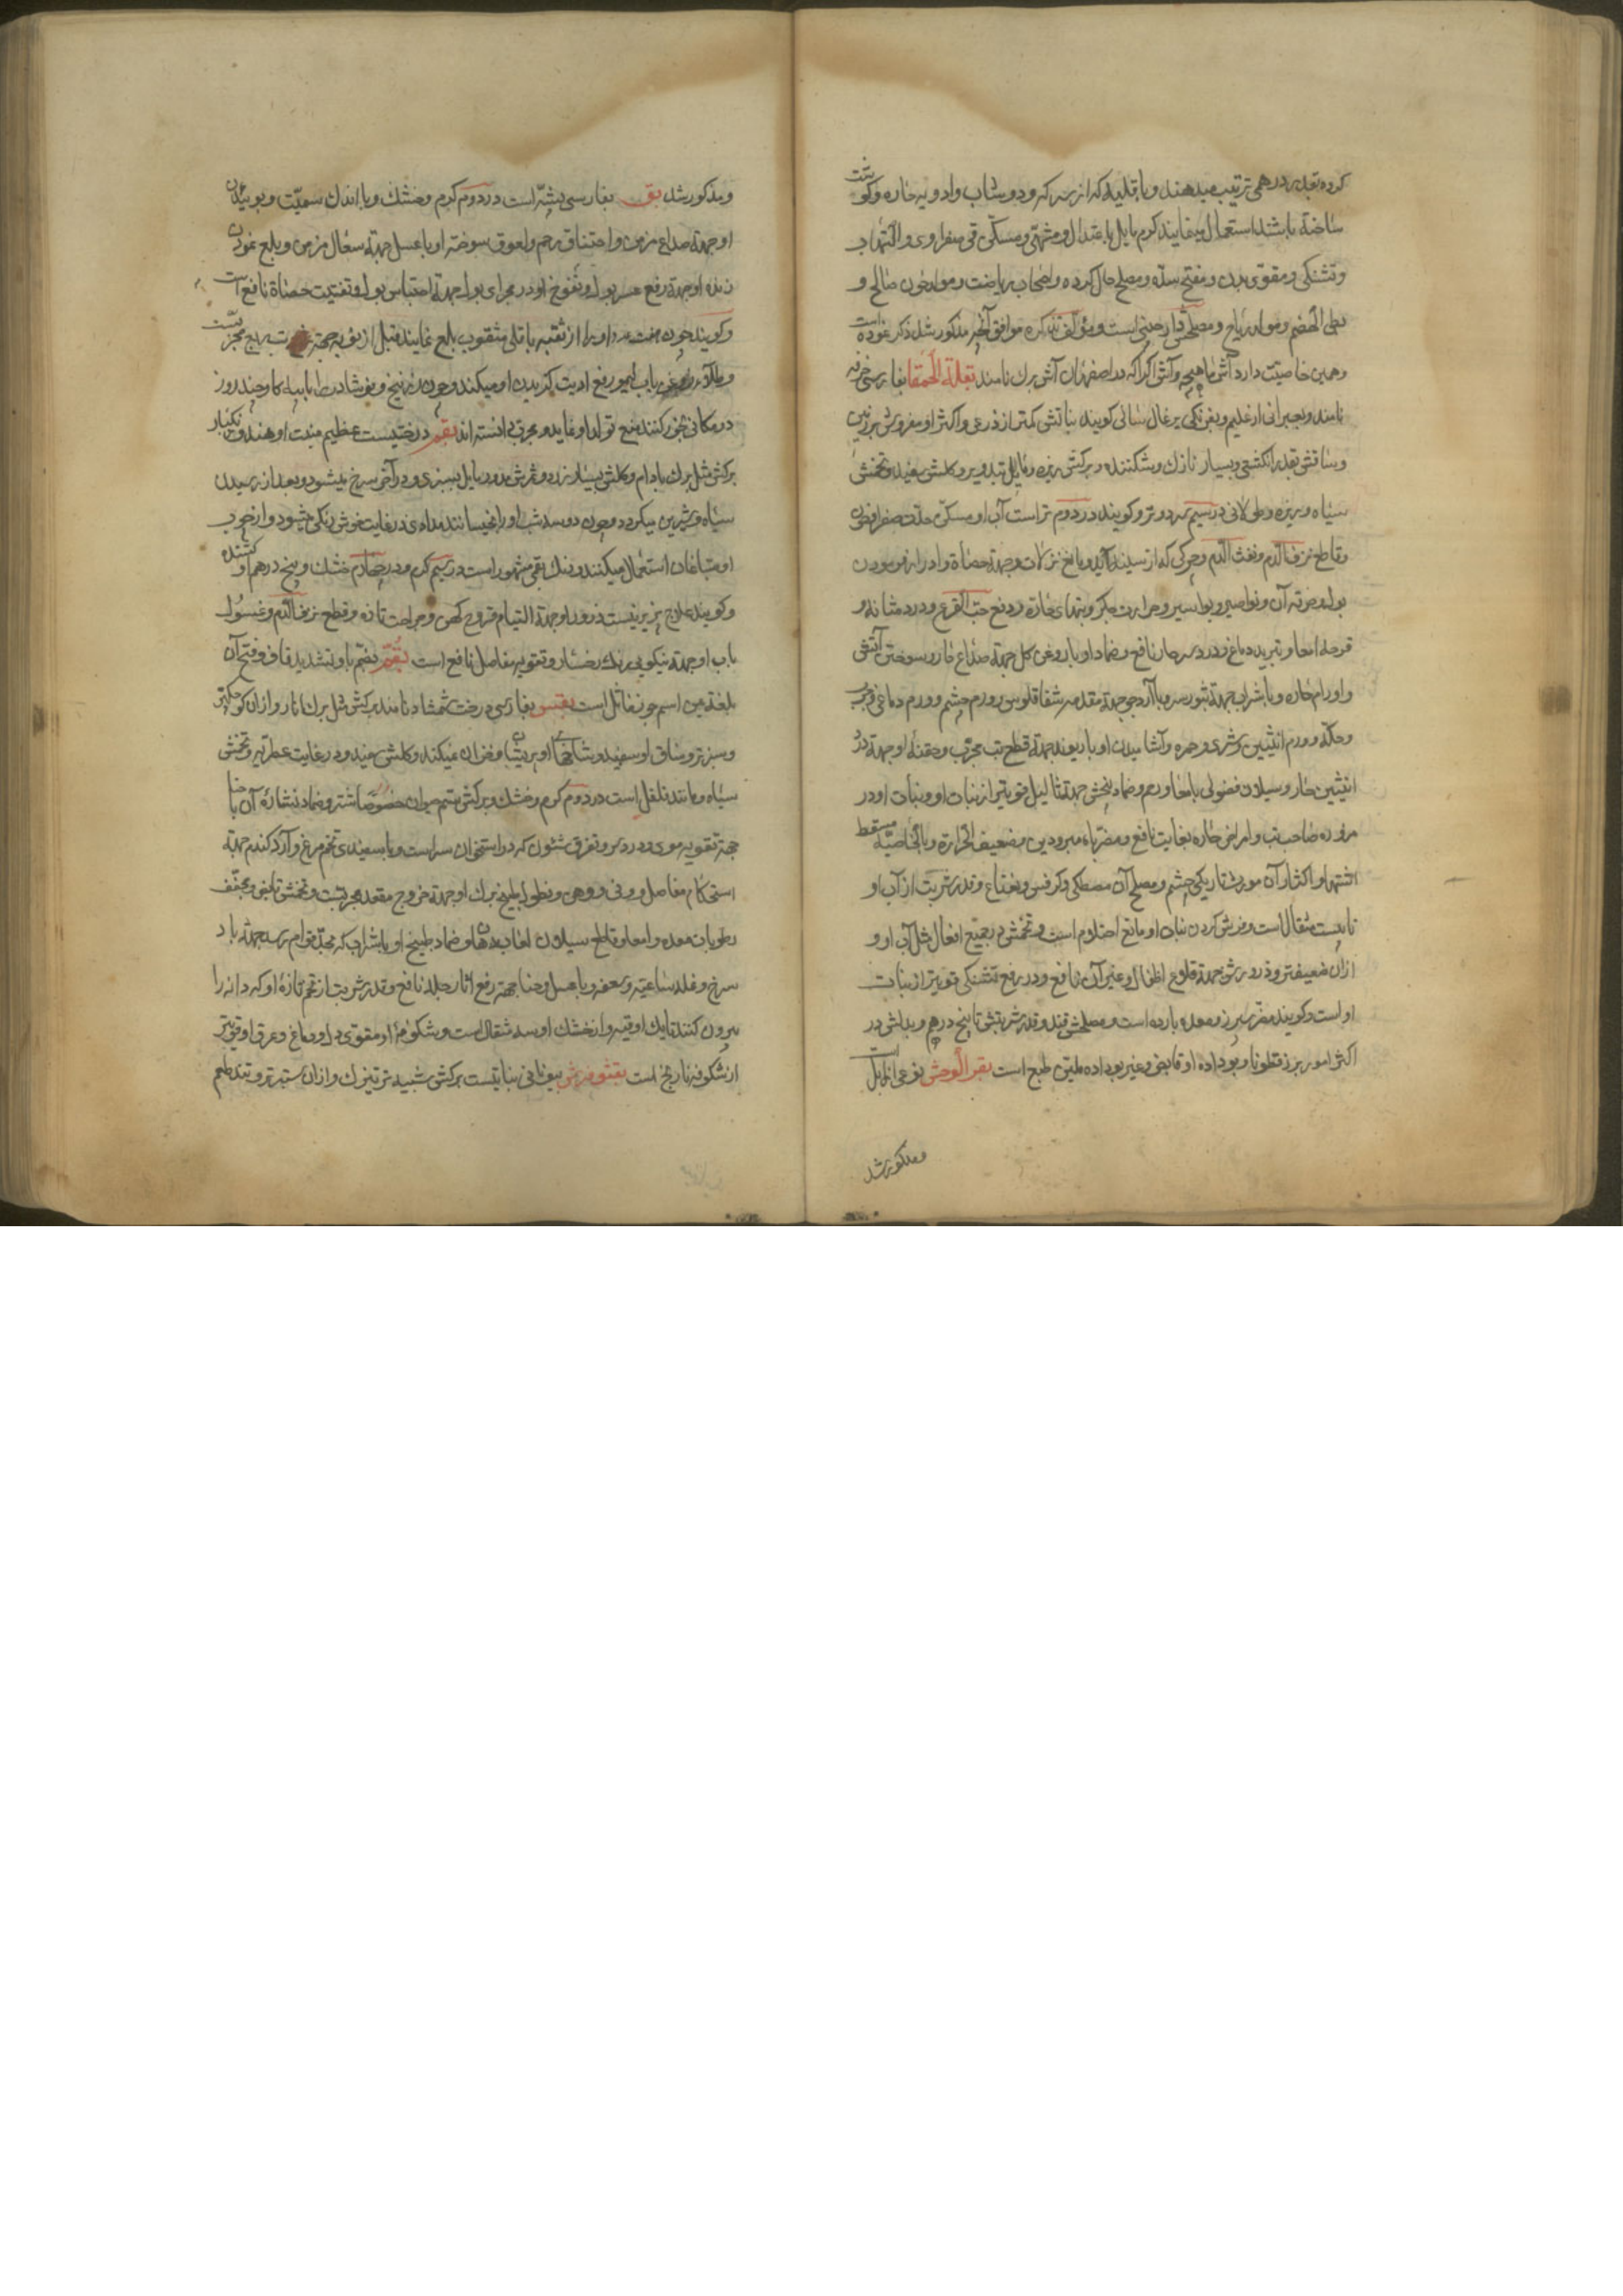 کرده بقدر درهمی ترتیب میدهند و با قلیه که از سرکه و دوشاب و ادویه حاره و کوشت
ساخته باشند استعمال مینمایند کرم مایل باعتدال و مشتهی و مسکن قی صفراوی و التهاب
و تشنکی و مقوی بدن و مفتح سده و مصلح حال کرده و اصحاب ریاضت و مولد خون صالح و
بطی الهضم و مولد ریاح و مصلحش دارچینی است و مؤلف تذکره موافق آنچه مذکور شد ذکر نموده است
و همین خاصیت دارد آش ماهیچه و آش اکرا که در اصفهان آش برک نامند بقلة الحمقا بفارسی خرفه
نامند و بعبرانی ارغلیم و بفرنکی برغال سائی کویند نباتش کمتر از ذرعی و اکثر او مفروش بر زمین
و ساقش بقدر انکشتی و بسیار نازک و شکننده و برکش ریزه و مایل بتدویر و کلش سفید و تخمش
سیاه و ریزه و طولانی در سیم سرد و تر و کویند در دوم تر است آب او مسکن حدت صفرا و خون
و قاطع نزف الدم و نفث الدم و چرکی که از سینه آید و مانع نزلات و جهة حصاة و ادرار نمودن
بول و حرقه آن و نواصیر و بواسیر و حرارت جکر و تبهای حاره و دفع حب القرع و درد مثانه و
قرحه امعا و تبرید دماغ و درد سر حار نافع و ضماد او با روغن کل جهة صداع حار و سوختن آتش
و اورام حاره و با شراب جهة بثور سر و با آرد جو جهة مقدمه شقاقلوس و ورم چشم و ورم دماغی و جرب
و حکه و ورم انثیین و شری و حمره و آشامیدن او با ریوند جهة قطع تب مجرب و حقنه او جهة درد
انثیین حار و سیلان فضولی بامعا و رحم و ضماد بیخش جهة ثالیل قویتر از نبات او و نبات او در
مزوره صاحب تب و امراض حاره بغایت نافع و مضر باه مبرودین و ضعیف الحرارة و بالخاصیة مسقط
اشتها و اکثار آن مورث تاریکی چشم و مصلح آن مصطکی و کرفس و نعناع و قدر شربت از آب او
تا بیست مثقال است و فرش کردن نبات او مانع احتلام است و تخمش در جمیع افعال مثل آب او و
ازان ضعیفتر و ذرورش جهة قلوع اطفال و غیر آن نافع و در رفع تشنکی قویتر از نبات
او است و کویند مضر سپرز و معده بارده است و مصلحش قند و قدر شربتش تا پنج درهم و بدلش در
اکثر امور بزر قطونا و بو داده او قابض و غیر بو داده ملین طبع است بقر الوحش نوعی از ایل است
و مذکور شد
و مذکور شد بق بفارسی پشه است در دوم کرم و خشک و با اندک سمیّت و بوئیدن
او جهة صداع مزمن و اختناق رحم و لعوق سوخته او با عسل جهة سعال مزمن و بلع نمودن
زنده او جهة رفع عسر بول و نفوخ او در مجرای بول جهة احتباس بول و تفتیت حصاة نافع است
و کویند چون هفت عدد او را از ثقبه باقلی مثقوب بلع نمایند قبل از نوبه جهة تب ربع مجربست
در مکانی بخور کنند منع تولد او نماید و مجرب دانسته اند بقم درختیست عظیم منبت او هند و زنکبار
برکش مثل برک بادام و کلش بسیار زرد و ثمرش مدور مایل بسبزی و در آخر سرخ میشود و بعد از رسیدن
سیاه و شیرین میکردد و چون دو سه شب او را بخیسانند مدادی در غایت خوش رنکی میشود و از چوب
او صباغان استعمال میکنند و رنک بقمی مشهور است در سیم کرم و در چهارم خشک و پنج درهم او کشنده
و کویند علاج پذیر نیست ذرور او جهة التیام قروح کهن و جراحت تازه و قطع نزف الدم و غسول
باب او جهة نیکوئی رنک رخسار و تقویه مفاصل نافع است بقّم بضم با و تشدید قاف و فتح آن
بلغة یمن اسم جوز ماثل است بقس بفارسی درخت شمشاد نامند برکش مثل برک انار و ازان کوچکتر
و سبزتر و ساق او سفید و شاخها او پریشان و خزان نمیکند و کلش سفید و در غایت عطریه و تخمش
سیاه و مانند فلفل است در دوم کرم و خشک و برکش سم حیوان خصوصا شتر و ضماد نشاره آن با حنا
جهة تقویه موی و درد سر و تفرق شئون که در استخوان سر است و با سفیدی تخم مرغ و آرد کندم جهة
استحکام مفاصل و وثی و وهن و نطول بطبیخ برک او جهة خروج مقعد مجربست و تخمش قابض و مجفف
رطوبات معده و امعا و قاطع سیلان لعاب دهان و ضماد طبیخ او با شراب که بحد قوام رسد جهة باد
سرخ و نمله ساعیه و سعفه و با عسل و حنا جهة رفع آثار جلد نافع و قدر شربت از تخم تازه او که دانه را
بیرون کنند تا یک اوقیه و از خشک او سه مثقال است و شکوفه او مقوی دل و دماغ و عرق او قویتر
از شکوفه نارنج است بیونانی نباتیست برکش شبیه بترتیزک و ازان ستبرتر و تند طعم